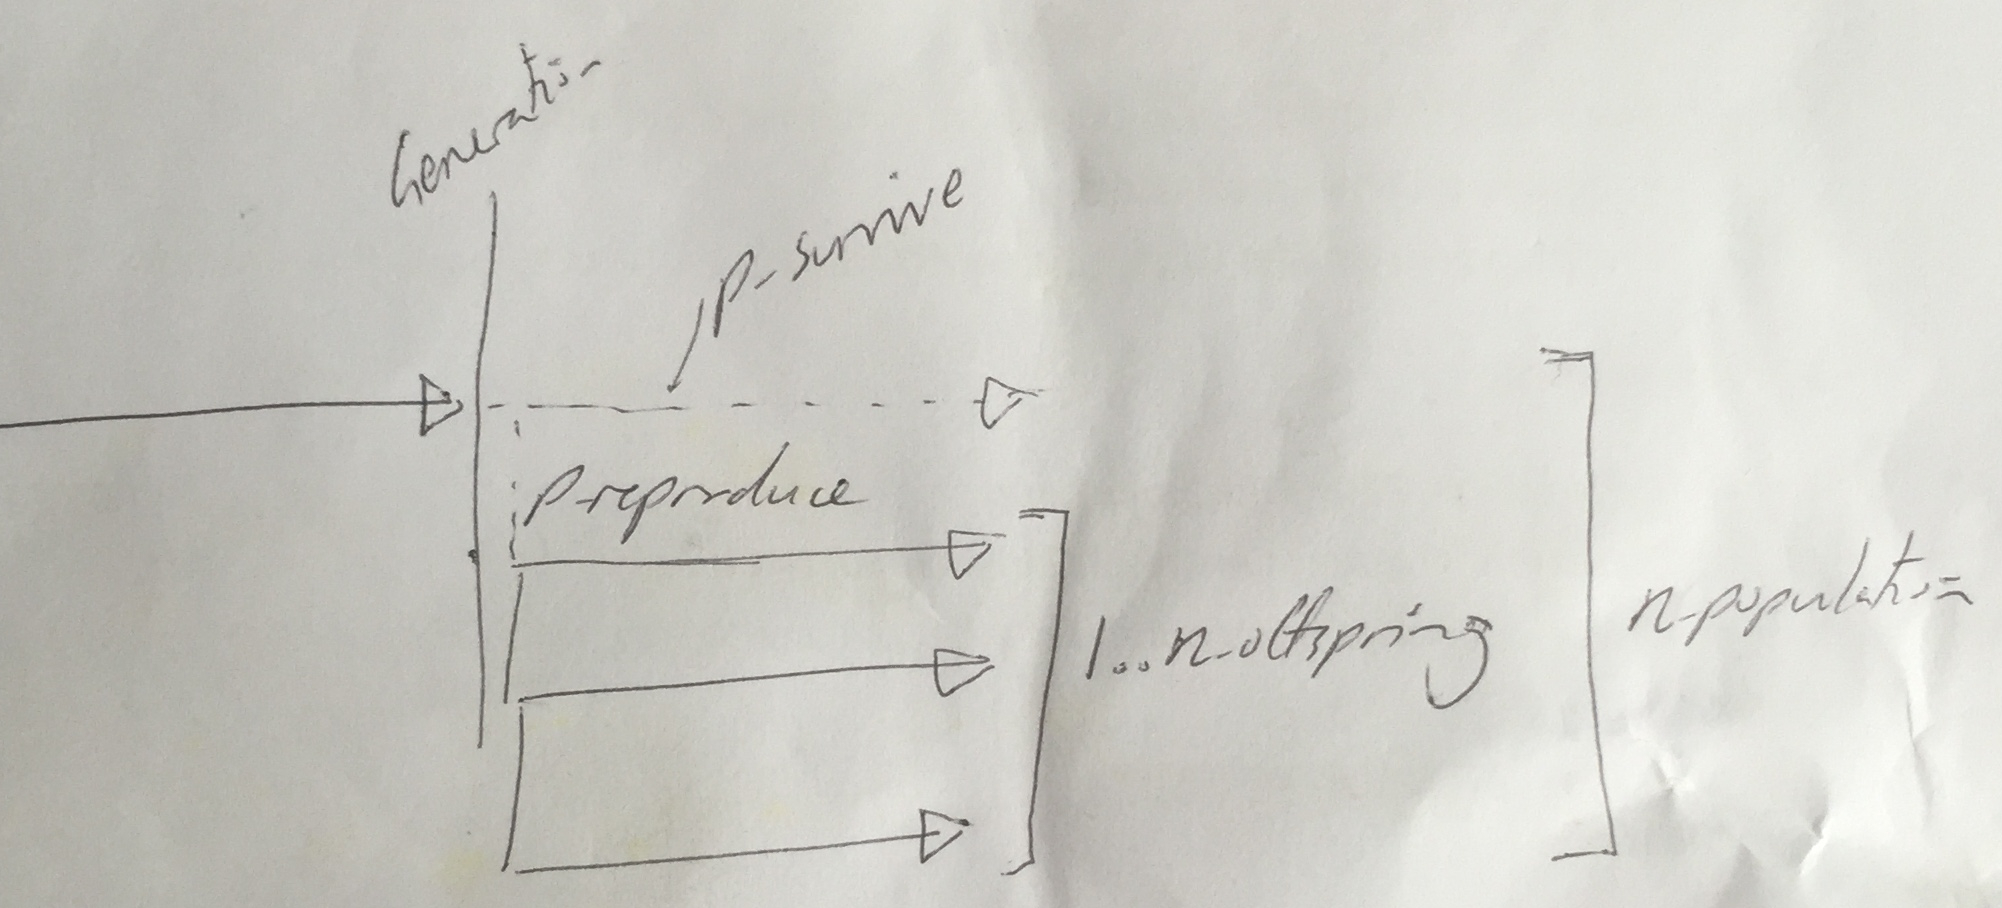 Generation
p-survive
p-reproduce
1..n-offspring
n-population